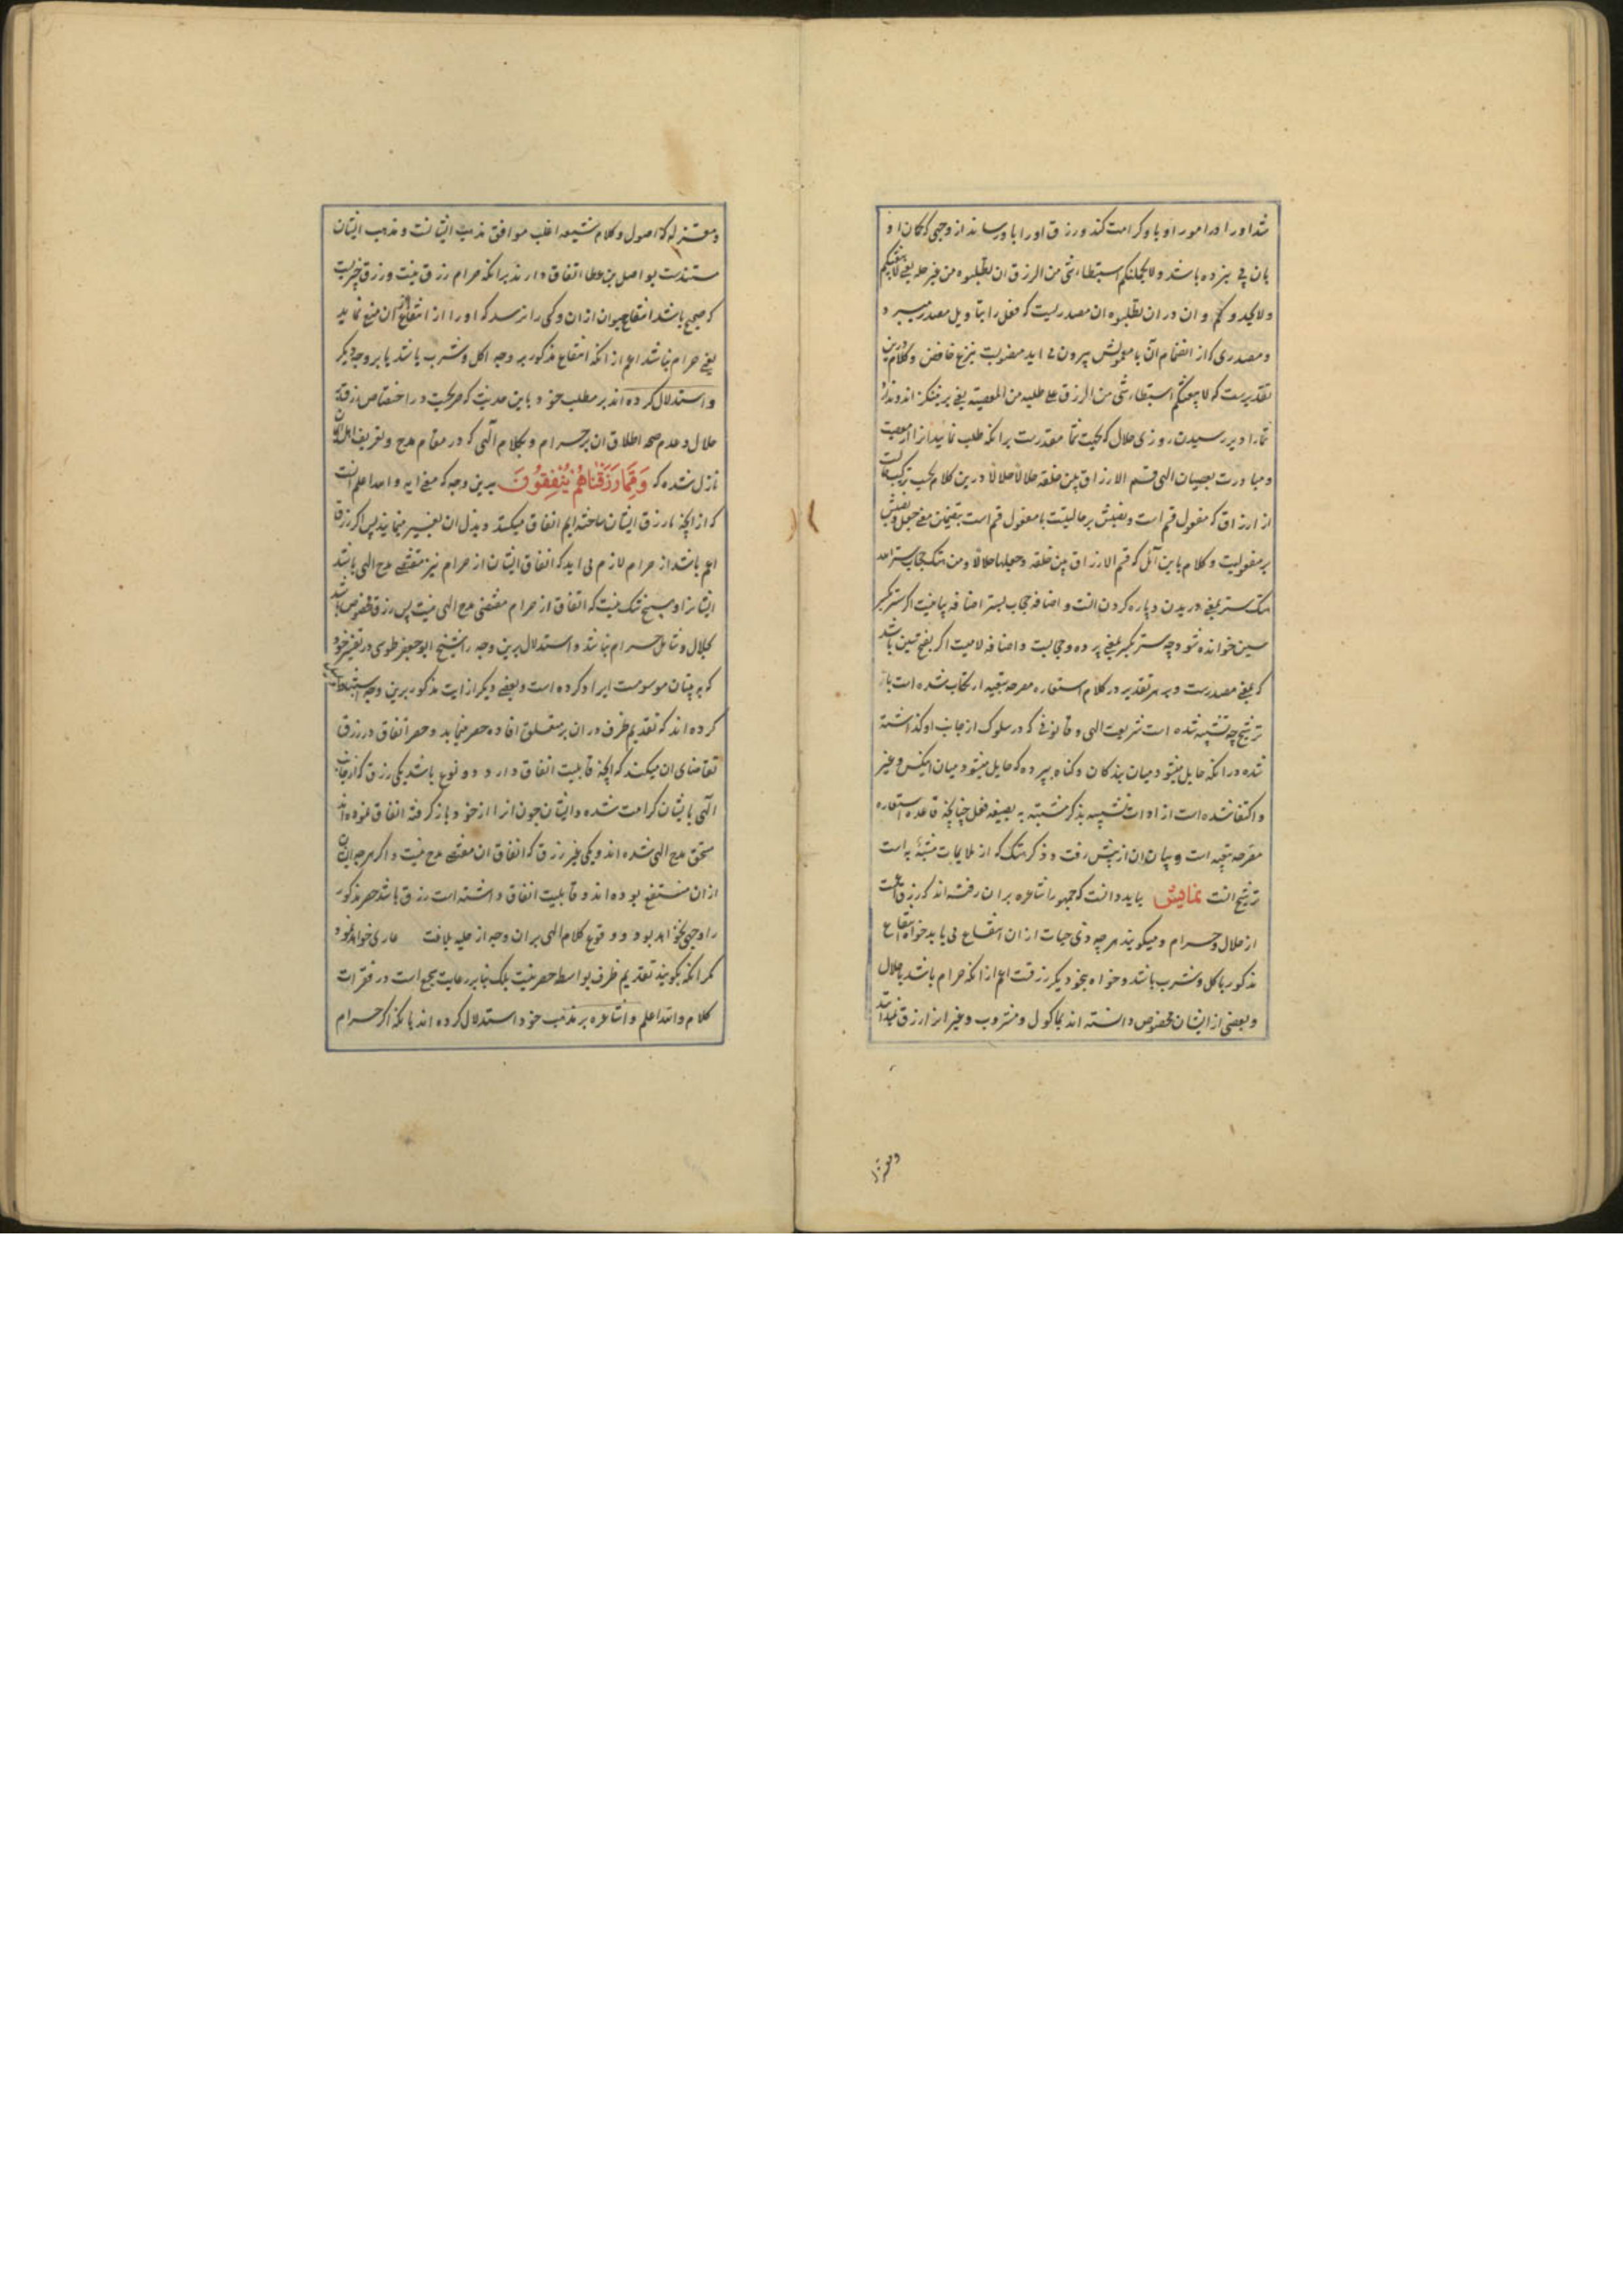 شد او را در امور او با و کرامت کند و رزق او را با و رساند از وجهی که کمان او
بان پی نبرده باشد و لا یحملنکم استبطاء شئ من الرزق ان تطلبوه من غیر حله یعنی لا یبعثنکم
و ان در ان تطلبوه ان مصدریست که فعل را بتاویل مصدر میبرد
و مصدری که از انضمام آن با معمولش بیرون می اید منصوبست بنزع خافض و کلام درین
تقدیر ست که لا یبعثنکم استبطاء شئ من الرزق علی طلبه من المعصیة یعنی بر نینکیزاند و ندارد
شما را دیر رسیدن روزی حلال که بجهت شما مقدرست برانکه طلب نمائید انرا از معصیت
و مبادرت بعصیان الهی قسم الارزاق بین خلقه حلالا حلالا درین کلام بحسب ترکیب حالست
از ارزاق که مفعول قسم است و نصبش بر حالیت یا مفعول قسم است بتضمین معنی جعل و نصبش
بر مفعولیت و کلام باین آئل که قسم الارزاق بین خلقه و جعلها حلالا و من هتک حجاب ستر الله
هتک ستر یعنی دریدن و پاره کردن انست و اضافه حجاب بستر اضافه بیانیست اکر ستر بکسر
سین خوانده شود چه ستر بکسر یعنی پرده و حجابست و اضافه لامیست اکر بفتح سین باشد
که یعنی مصدرست و بر هر تقدیر در کلام استعاره مصرحه تبعیه ارتکاب شده است با
ترشیح چه تشبیه شده است شریعت الهی و قانونی که در سلوک از جانب او کذاشته
شده در انکه حایل میشود میان بندکان و کناه بپرده که حایل میشود میان انکس و غیر
و اکتفا شده است از ادات تشبیه بذکر مشبه به بصیغه فعل چنانچه قاعده استعاره
مصرحه تبعیه است و بیان ان از پیش رفت و ذکر هتک که از ملایمات مشبه به است
ترشیح انست نمایش باید دانست که جمهور اشاعره بران رفته اند که رزق اعمست
از حلال و حرام و میکویند هر چه ذی حیات از ان انتفاع می یابد خواه انتفاع
مذکور باکل و شرب باشد و خواه بنحو دیکر رزقست اعم از انکه حرام باشد یا حلال
و بعضی از ایشان مخصوص دانسته اند بماکول و مشروب و غیر انرا رزق نمیدانند
ومعتزله
ومعتزله که اصول و کلام شیعه اغلب موافق مذهب ایشانست و مذهب ایشان
مستندست بواصل بن عطا اتفاق دارند برانکه حرام رزق نیست و رزق چیزیست
که صحیح باشد انتفاع حیوان از ان و کسی را نرسد که او را از انتفاع از ان منع نماید
یعنی حرام نباشد اعم از انکه انتفاع مذکور بر وجه اکل و شرب باشد یا بر وجه دیکر
و استدلال کرده اند بر مطلب خود باین حدیث که صریحست در اختصاص رزق
حلال و عدم صحه اطلاق ان بر حرام و بکلام الهی که در مقام مدح و تعریف اهل ایمان
نازل شده که وَمِمَّا رَزَقْنَاهُمْ يُنْفِقُونَ بدین وجه که معنی ایه و الله اعلم انست
که از انچه ما رزق ایشان ساخته ایم انفاق میکنند و بذل ان بغیر مینمایند پس اکر رزق
اعم باشد از حرام لازم می اید که انفاق ایشان از حرام نیز مقتضی مدح الهی باشد
ایشانرا و هیچ شک نیست که انفاق از حرام مقتضی مدح الهی نیست پس رزق مخصوص باشد
بحلال و شامل حرام نباشد و استدلال برین وجه را شیخ ابو جعفر طوسی در تفسیر خود
که به تبیان موسومست ایراد کرده است و بعضی دیکر از ایت مذکور برین وجه استنباط
کرده اند که تقدیم ظرف در ان بر متعلق افاده حصر مینماید و حصر انفاق در رزق
تقاضای ان میکند که انچه قابلیت انفاق دارد دو نوع باشد یکی رزق که از جانب
الهی بایشان کرامت شده و ایشان چون انرا از خود باز کرفته انفاق نموده اند
مستحق مدح الهی شده اند و یکی غیر رزق که انفاق ان مقتضی مدح نیست و اکر هر چه ایشان
از ان منتفع بوده اند و قابلیت انفاق داشته است رزق باشد حصر مذکور
را وجهی نخواهد بود و وقوع کلام الهی بران وجه از حلیه بلاغت عاری خواهد بود
مکر انکه بکویند تقدیم ظرف بواسطه حصر نیست بلکه بنا بر رعایت سجع است در فقرات
کلام والله اعلم و اشاعره بر مذهب خود استدلال کرده اند بانکه اکر حرام